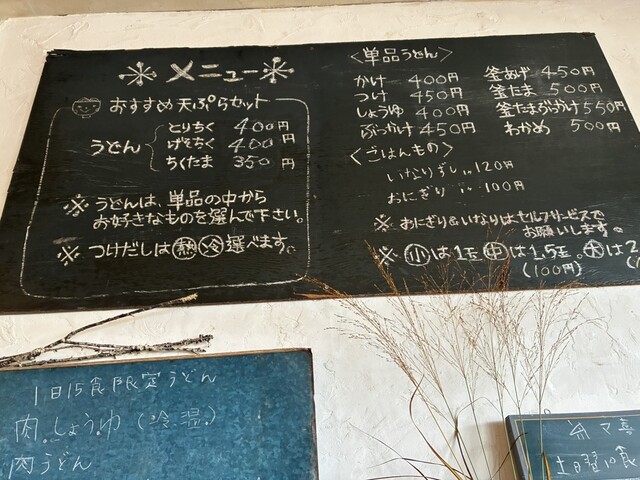 ※メニュー※
おすすめ天ぷらセット
うどん
とりちく 400円
げそちく 400円
ちくたま 350円
※うどんは、単品の中から
お好きなものを選んで下さい。
※つけだしは熱冷選べます。
〈単品うどん〉
かけ 400円
つけ 450円
しょうゆ 400円
ぶっかけ 450円
釜あげ 450円
釜たま 500円
釜たまぶっかけ 550円
わかめ 500円
〈ごはんもの〉
いなりずし 120円
おにぎり 100円
※おにぎり&いなりはセルフサービスで
お願いします。
※小は1玉中は1.5玉。大は2
(100円)
1日15食限定うどん
肉しょうゆ(冷温)
肉うどん
土日曜10食